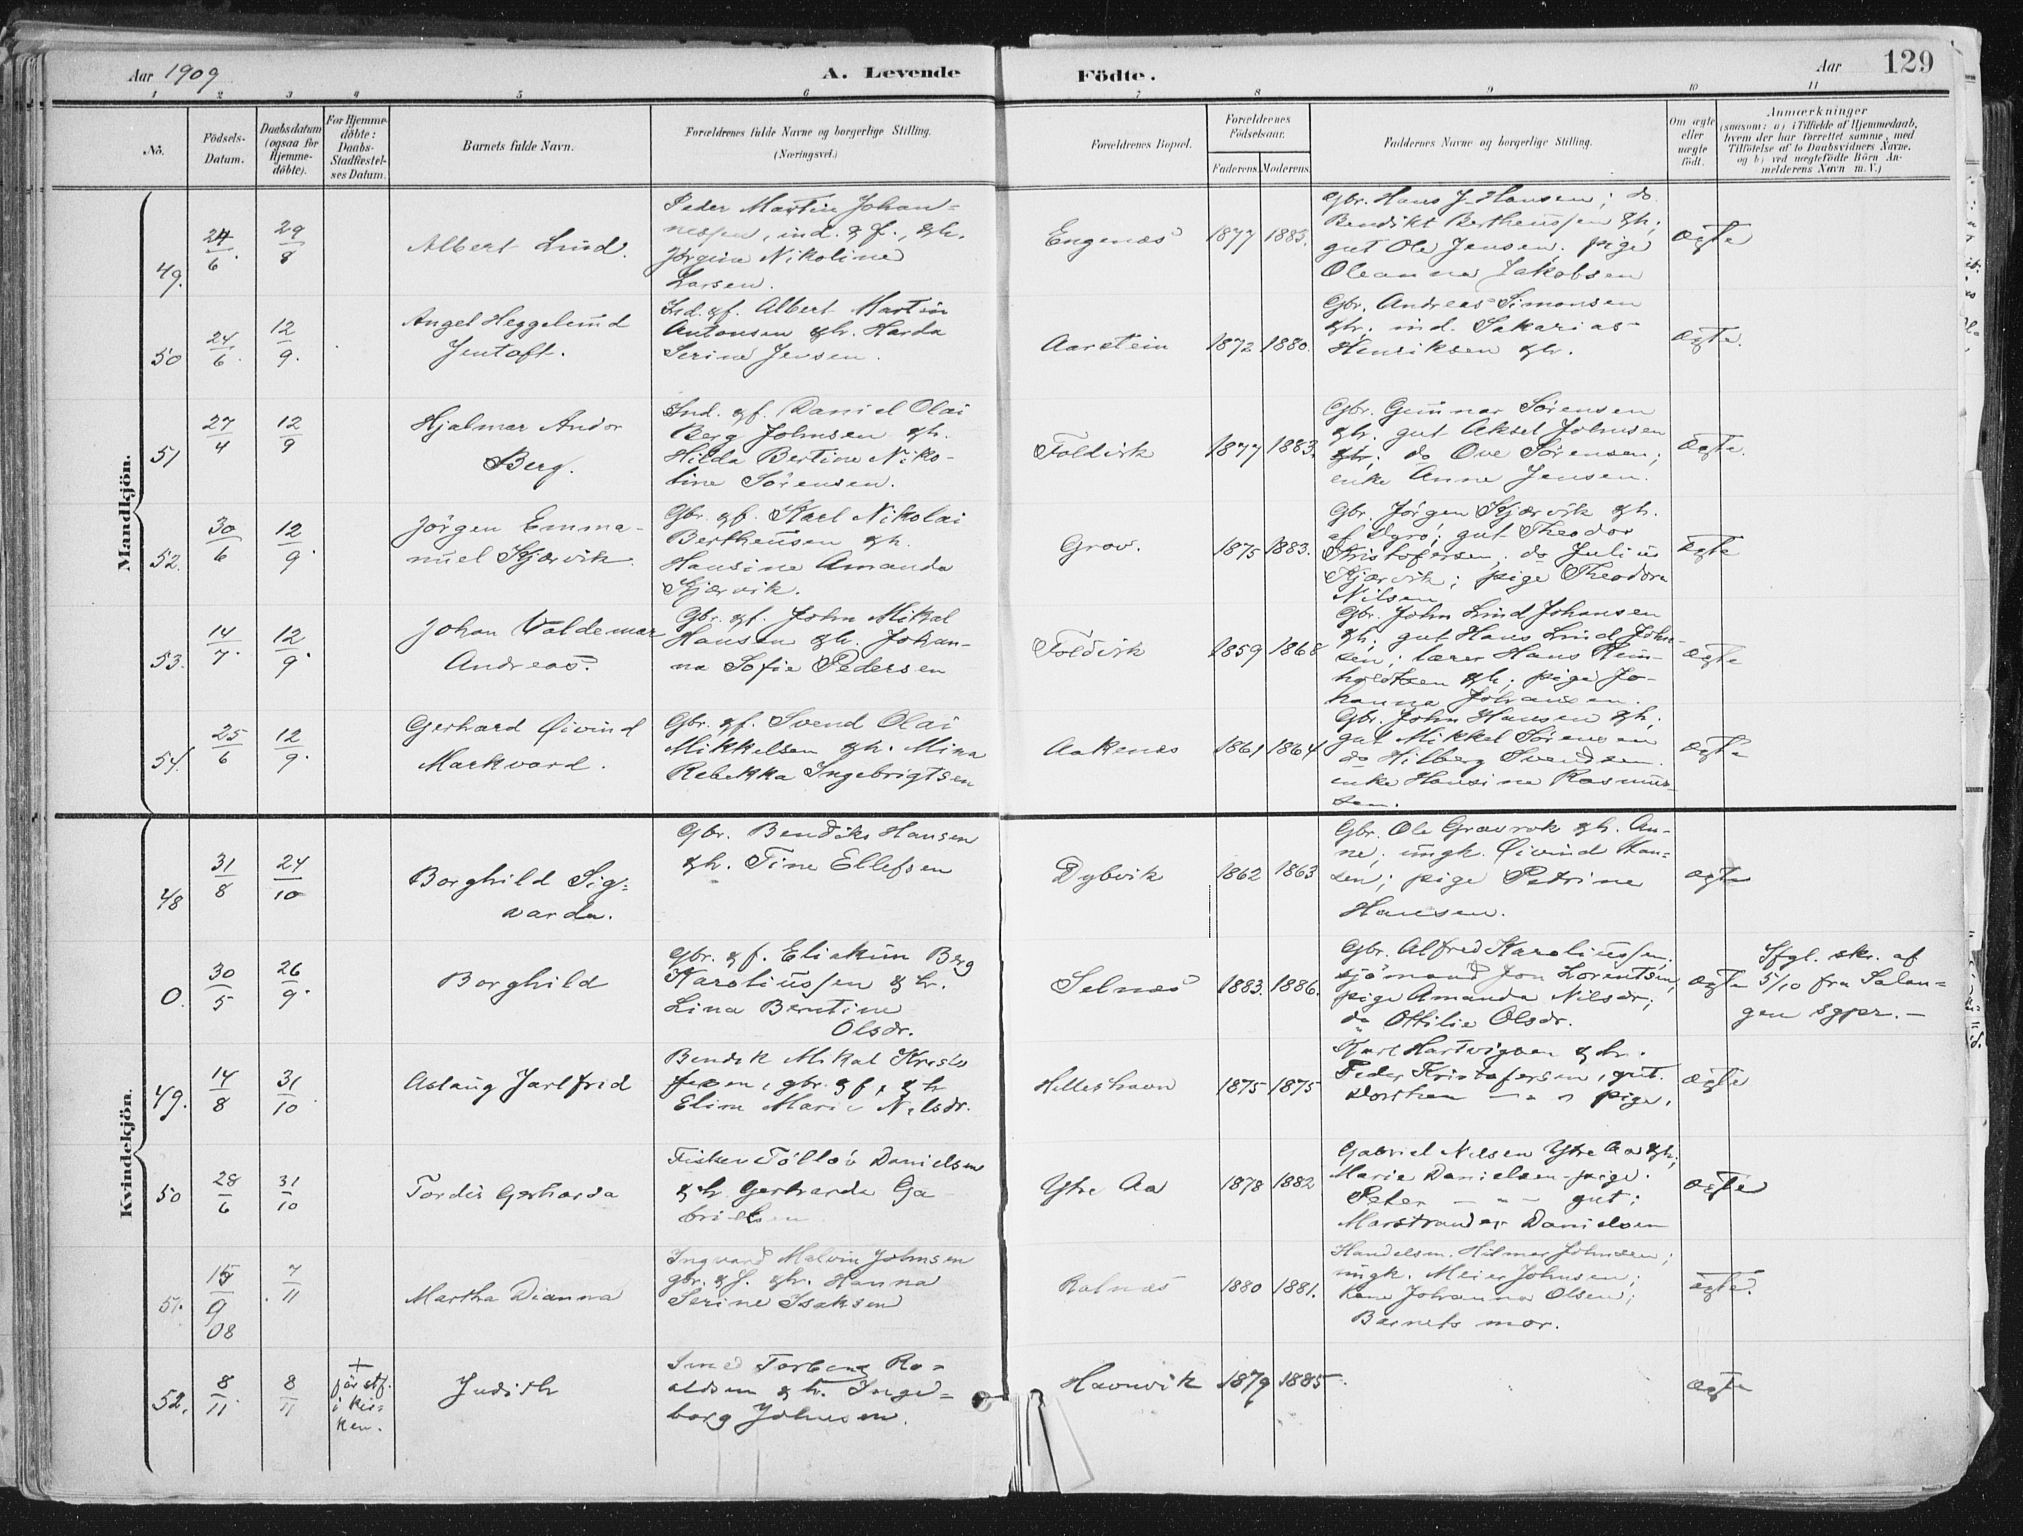 Aar 1909
A. Levende
Födte.
Aar
129
1 2 3 4 5 6 7 8 9 10 11
No.
Födsels-
Datum.
Daabsdatum
(ogsaa for
Hjemme-
döbte).
For Hjemme-
döbte:
Daabs-
Stadfæstel-
ses Datum.
Barnets fulde Navn.
Forældrenes fulde Navne og borgerlige Stilling.
(Næringsvei.)
Forældrenes Bopæl.
Forældrenes
Födselsaar.
Faderens. Moderens.
Faddernes Navne og borgerlige Stilling.
Om ægte
eller
uægte
födt.
Anmærkninger
(saasom: a) i Tilfælde af Hjemmedaab,
hvem der har forrettet samme, med
Tilföielse af to Daabsvidners Navne.
og b) ved uægtefödte Börn An-
melderens Navn m. V.)
Mandkjön.
49.
24/6.
29/8
Albert Lund.
Peder Martin Johan-
nessen, ind. & f., & h.
Jørgine Nikoline
Larsen.
Engenæs
1877 1885.
Gbr. Hans J. Hansen; do
Bendikt Bertheussen & h;
gut Ole Jensen; pige
Oleanna Jakobsen
ægte
50
24/6.
12/9.
Angel Heggelund
Jentoft.
Ind. & f. Albert Martin
Antonsen & h. Harda
Serine Jensen.
Aarstein
1872 1880.
Gbr. Andreas Simonsen
& h. ind. Sakarias
Henriksen & h.
ægte.
51
27/4
12/9
Hjalmar Andor
Berg.
Ind. & f. Daniel Olai
Berg Johnsen & h.
Hilda Bertine Niko-
line Sörensen.
Foldvik
1877 1883.
Gbr. Gunnar Sörensen
& h. gut Aksel Johnsen
do Ove Sörensen;
enke Anne Jensen.
ægte.
52.
30/6
12/9.
Jörgen Emma-
nuel Kjærvik.
Gbr. & f. Karl Nikolai
Bertheusen & h.
Hansine Amanda
Kjærvik.
Grov.
1875 1883.
Gbr. Jörgen Kjærvik & h.
af Dyrö; gut Theodor
Kristofersen; do Julius
Kjærvik; pige Theodora
Nilsen
ægte
53.
14/7.
12/9.
Johan Valdemar
Andreas.
Gbr. & f. John Mikal
Hansen & h. Johan-
na Sofie Pedersen
Foldvik
1859 1868
Gbr. John Lind Johansen
& h; gut Hans Lind John-
sen; lærer Hans Rein-
holdtsen & h; pige Jo-
hanna Johansen.
ægte
54.
25/6
12/9.
Gerhard Öivind
Markvard.
Gbr. & f. Svend Olai
Mikkelsen & h. Mina
Rebekka Ingebrigtsen
Aakenæs
1861 1864
Gbr. John Hansen & h;
gut Mikkel Sörensen
do Hilberg Svendsen.
enke Hansine Rasmus-
sen.
ægte
Kvindekjön.
48
31/8
24/10
Borghild Sig-
varda.
Gbr. Bendiks Hansen
& h. Tine Ellefsen
Dybvik
1862 1863
Gbr. Ole & h. An-
ne; ungk. Öivind Han-
sen; pige Petrine
Hansen.
ægte
0.
30/5
26/9.
Borghild
Gbr. & f. Eliakim Berg
Karoliussen & h.
Lina Berntine
Olsdr.
Selnæs
1883. 1886.
Gbr. Alfred Karoliussen;
sjömand Jon Lorentsen,
pige Amanda Nilsdr;
do Ottilie Olsdr.
ægte
Ifgl. skr. af
5/10 fra Salan-
gen sgpr. —
49.
14/8
31/10
Aslaug Jarlfrid
Bendik Mikal Kristo
fersen, gbr. & f. & h
Elise Marie Nilsdr.
Helleshavn
1875 1875
Karl Hartvigsen & h.
Peder Kristofersen, gut.
Dorthea — " — pige.
ægte
50
28/6
31/10
Tordis Gerharda
Fisker Tollöv Danielsen
& h. Gerharda Ga
brielsen
Ytre Aa
1878 1882
Gabriel Nilsen Ytre Aa & h;
Marie Danielsen pige.
Peter — " — gut;
Marstrander Danielsen
ægte
51.
15/9
08
7/11
Martha Dianna
Ingvard Malvin Johnsen
gbr. & f. & h. Hanna
Serine Isaksen
Rolnæs
1880 1881.
Handelsm. Hilmar Johnsen;
ungk. Meier Johnsen;
kone Johanna Olsen;
Barnets mor.
ægte.
52.
8/11
8/11
+
før stf.
i kir-
ken.
Judith
Torberg Ro-
aldsen & h. Inge-
borg Johnsen.
Havnvik
1879 1885
ægte